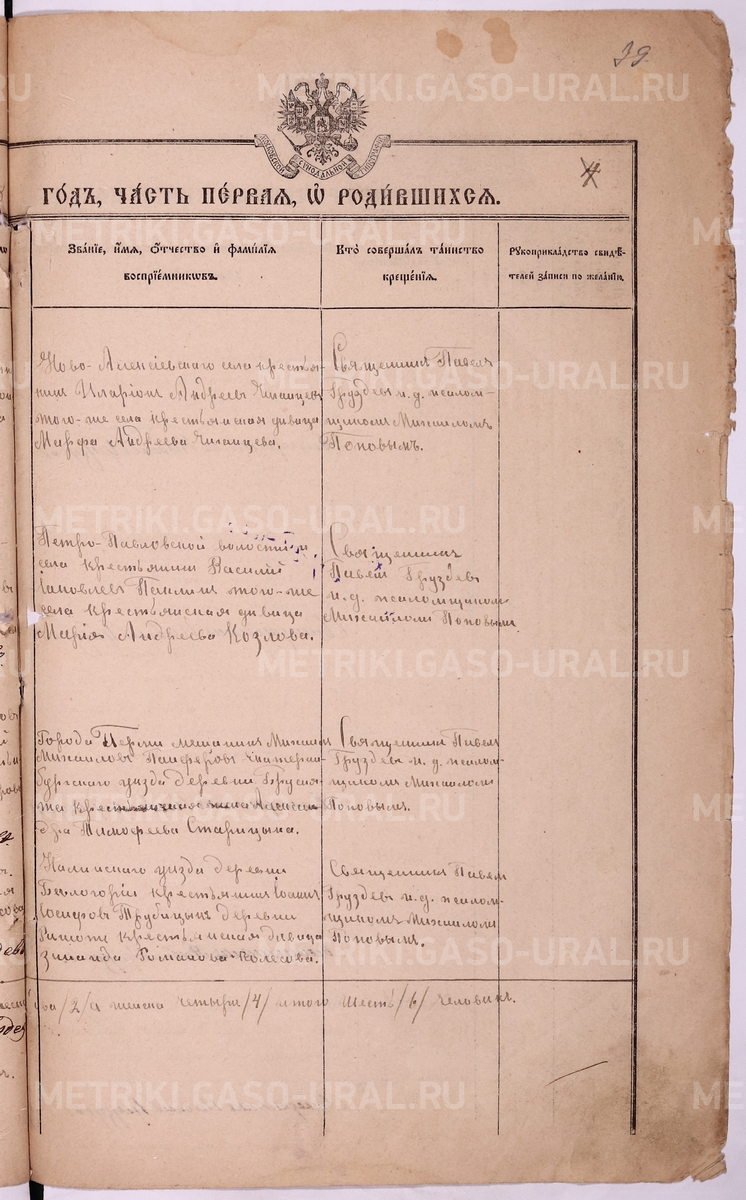 39.
МОСКОВСКОЙ СУНОДАЛЬНОЙ ТИПОГРАФІИ
4
ГО́ДЪ, ЧА́СТЬ ПЕ́РВАЯ, Ѡ РОДИ́ВШИХСЯ.
Зва́нїе, и́мя, ѻ́тчество и҆ фамилїя
воспрїе́мникѡвъ.
Кто̀ соверша́лъ та́инство
креще́нїя.
Рукоприкла́дство свидѣ́-
телей за́писи по жела́нїю.
Ново-Алексіевскаго села крестья-
нинъ Иларіон Андреевъ
того-же села крестьянская дѣвица
Марфа Андреева
Священникъ Павелъ
Груздевъ и. д. псалом-
щикомъ Михаиломъ
Поповымъ.
Петро-Павловской волости и
села крестьянинъ Василій
Іаковлевъ того-же
села крестьянская дѣвица
Марія Андреева Козлова.
Священникъ
Павелъ Груздевъ
и. д. псаломщикомъ
Михаиломъ Поповымъ.
Города Перми мѣщанинъ Михаилъ
Михаиловъ Панферовъ Екатерин-
бургскаго уѣзда деревни
крестьянская жена Алексан-
дра Тимофеева Старицына.
Священникъ Павелъ
Груздевъ и. д. псалом-
щикомъ Михаиломъ
Поповымъ.
уѣзда деревни
Бѣлогоріи крестьянинъ Іоаннъ
Іосифовъ Трубицынъ деревни
крестьянская дѣвица
Зинаида Романова Колесова.
Священникъ Павелъ
Груздевъ и. д. псалом-
щикомъ Михаиломъ
Поповымъ.
два /2/ а женска четыре /4/ итого шесть /6/ человѣкъ.
METRIKI.GASO-URAL.RU